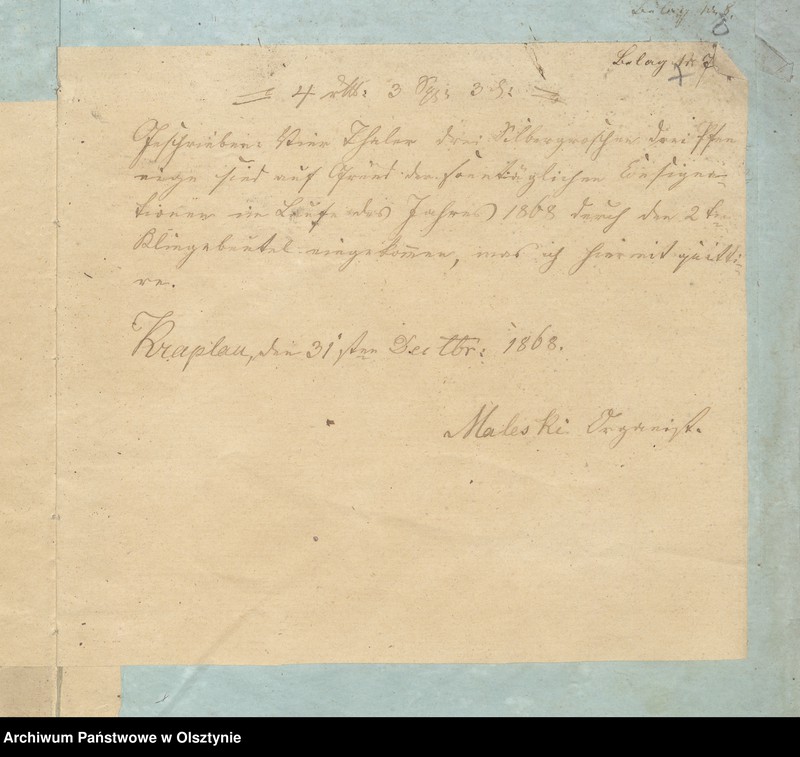 Belag N. 8.
Belag N. 7
= 4 rtl: 3 Sg: 3 d: =
Geschrieben: Vier Thaler drei Silbergroschen drei Pfen
nige sind auf Grund der sonntäglichen Consigna-
tionen im Laufe des Jahres 1868 durch den 2ten
Klingebeutel eingekommen, was ich hiermit quitti-
re.
Kraplau, den 31sten Decbr: 1868.
Maleski Organist.
Archiwum Państwowe w Olsztynie